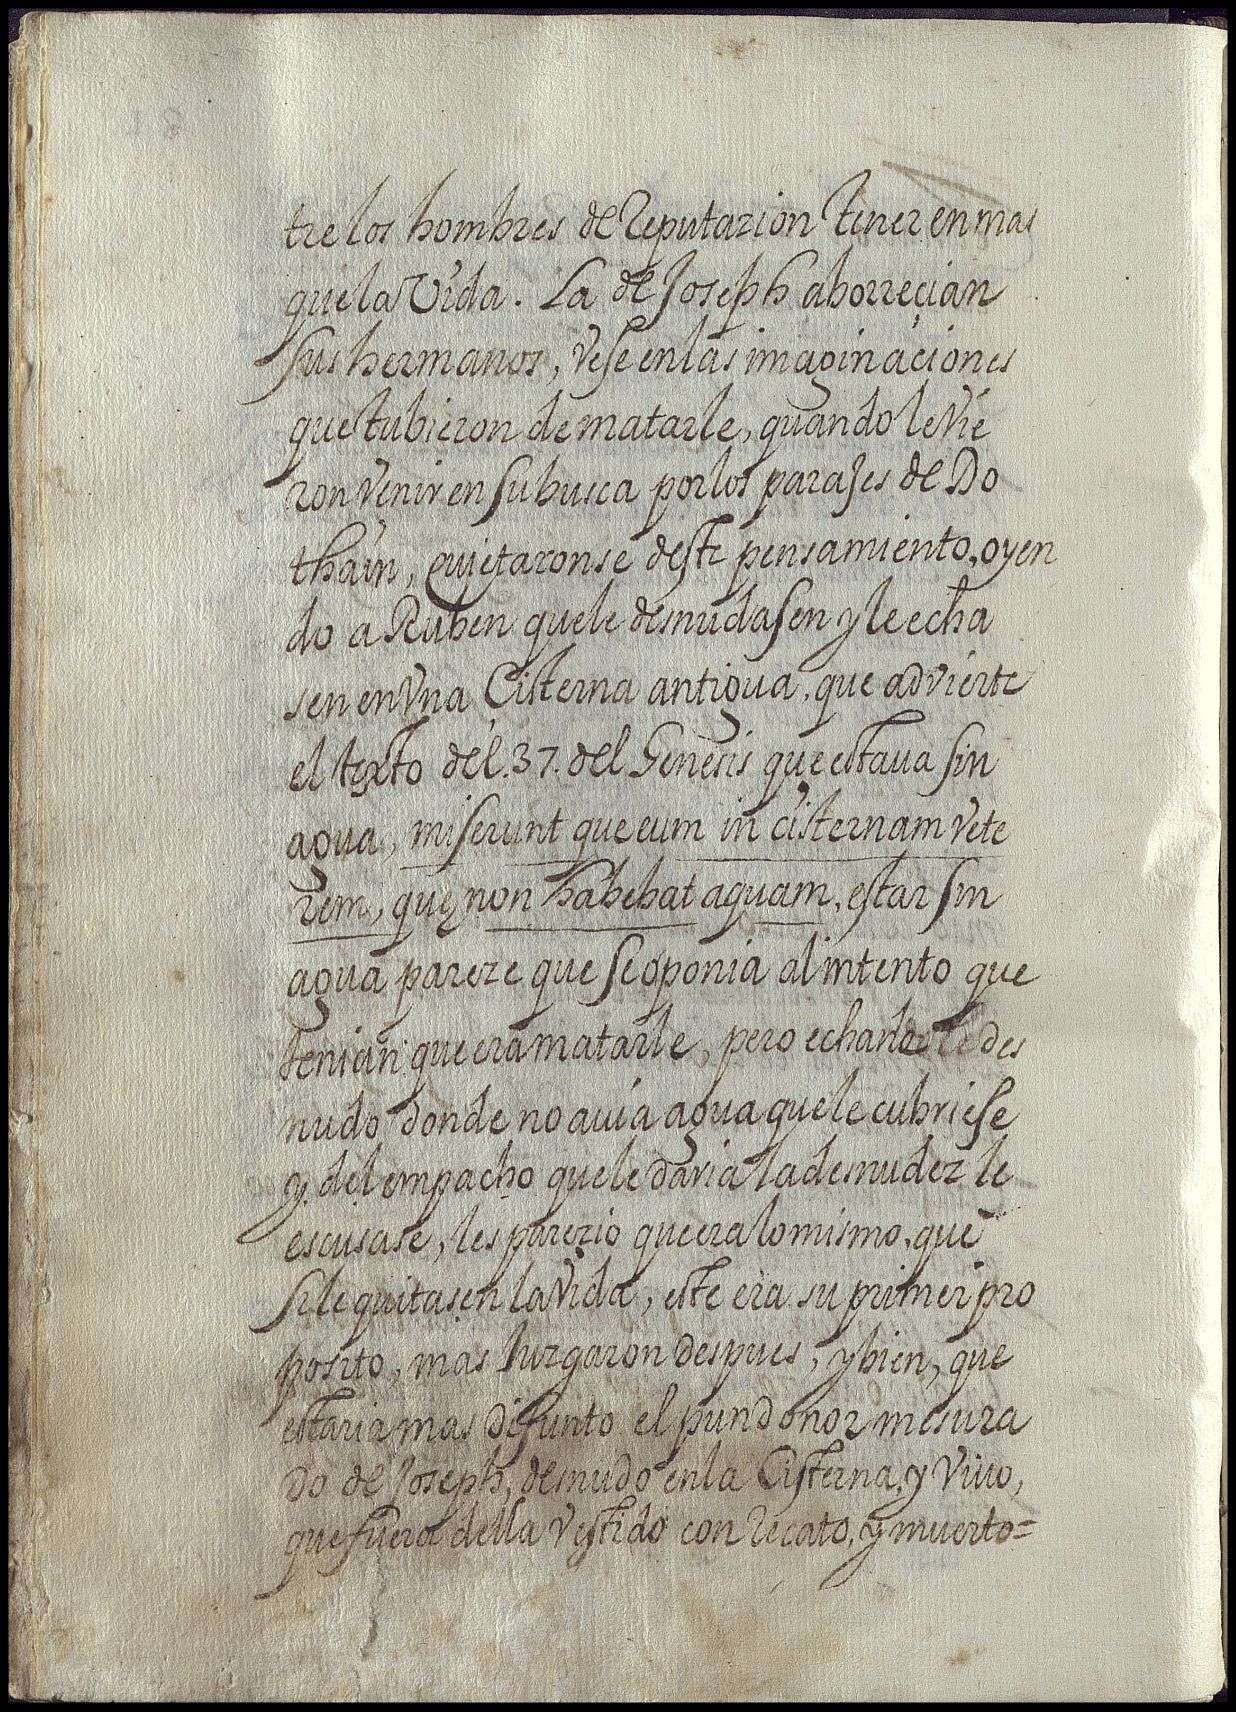 tre los hombres de reputazion tener en mas
que la vida. La de Joseph aborreçian
sus hermanos, vese en las imaginaciones
que tubieron de matarle, quando le vie
ron venir en su busca por los parajes de Do
thain, quietaronse deste pensamiento, oyen
do a Ruben que le desnudasen y le echa
sen en vna Cisterna antigua, que advierte
el texto del .37. del Genesis que estaua sin
agua, miserunt que eum in cisternam vete
rem, quę non habebat aquam, estar sin
agua pareze que se oponia al intento que
tenian que era matarle, pero echandole des
nudo donde no auia agua que le cubriese
y del empacho que le daria la desnudez le
escusase, les parezio que era lo mismo, que
si le quitasen la vida, este era su primer pro
posito, mas Juzgaron despues, y bien, que
estaria mas difunto el pundonor mesura
do de Joseph, desnudo en la Cisterna, y viuo,
que fuera della vestido con recato, y muerto=